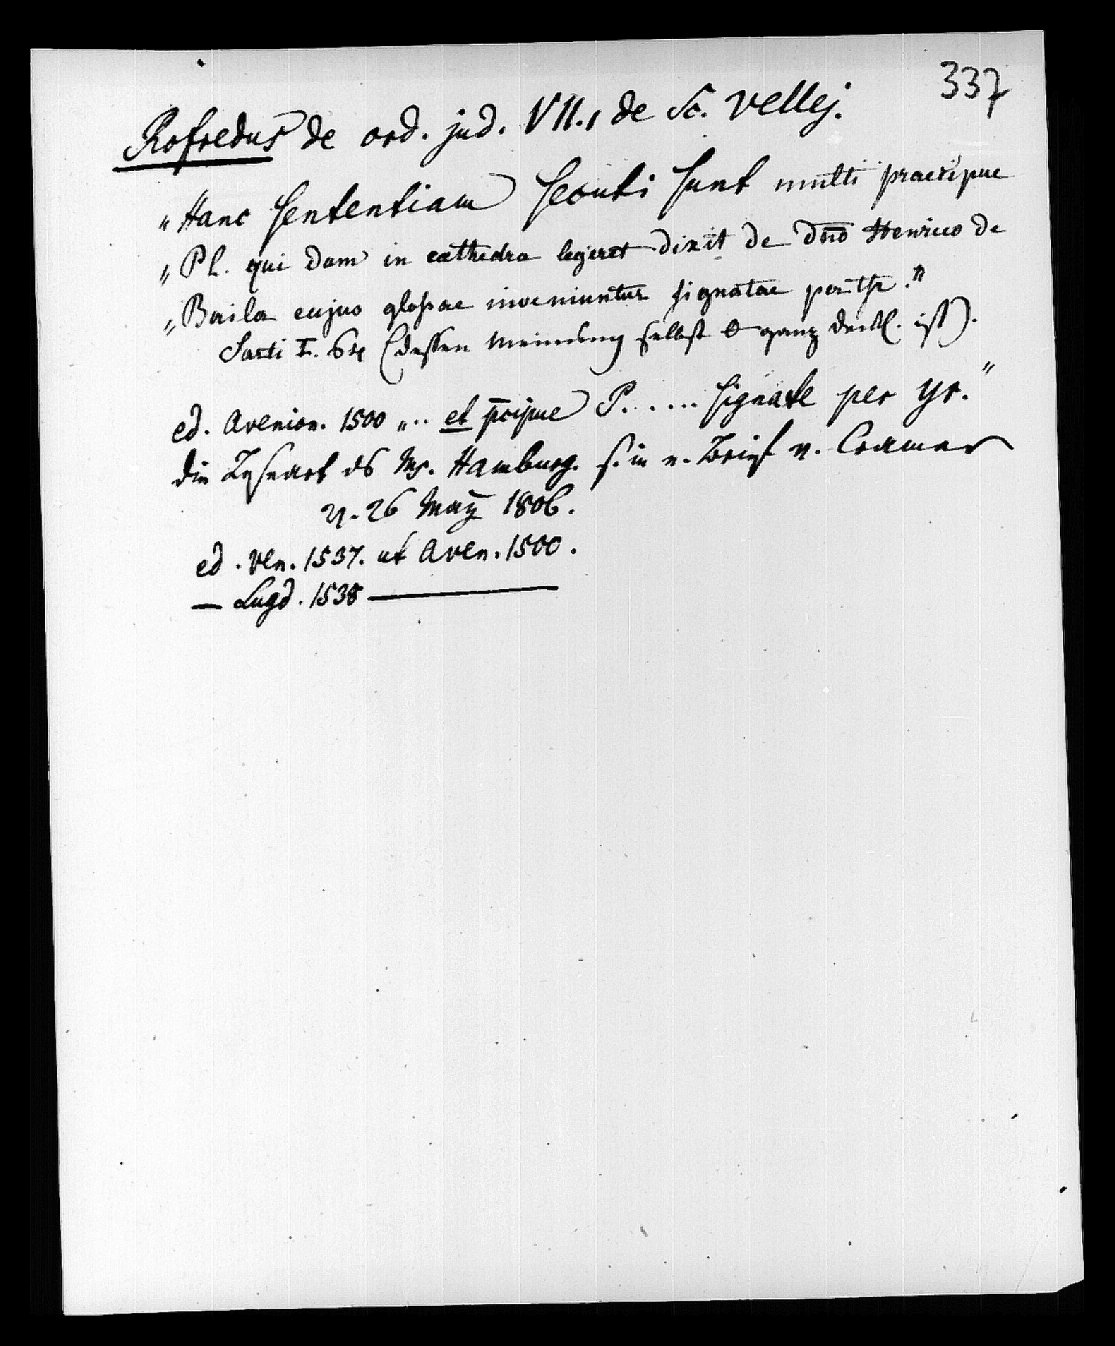 337
Rofredus de ord. jud. VII., de Sc. vellej.
"Hanc sententiam secuti sunt multi praecipue
"Ph. qui dum in cathedra legeret dixit de dno Henrico de
"Baila cujus glossae inveniuntur signatae per
Sarti I. 64 (dessen Meinung selbst ganz ist).
ed. Avenion. 1500 "... et pcipue P. . . . . . signate per yr."
die Lesart ds Ms. Hamburg. s. in e. Brief v. Cramer
v. 26 May 1806.
ed. Ven. 1537. ut Aven. 1500.
— Lugd. 1538 ———